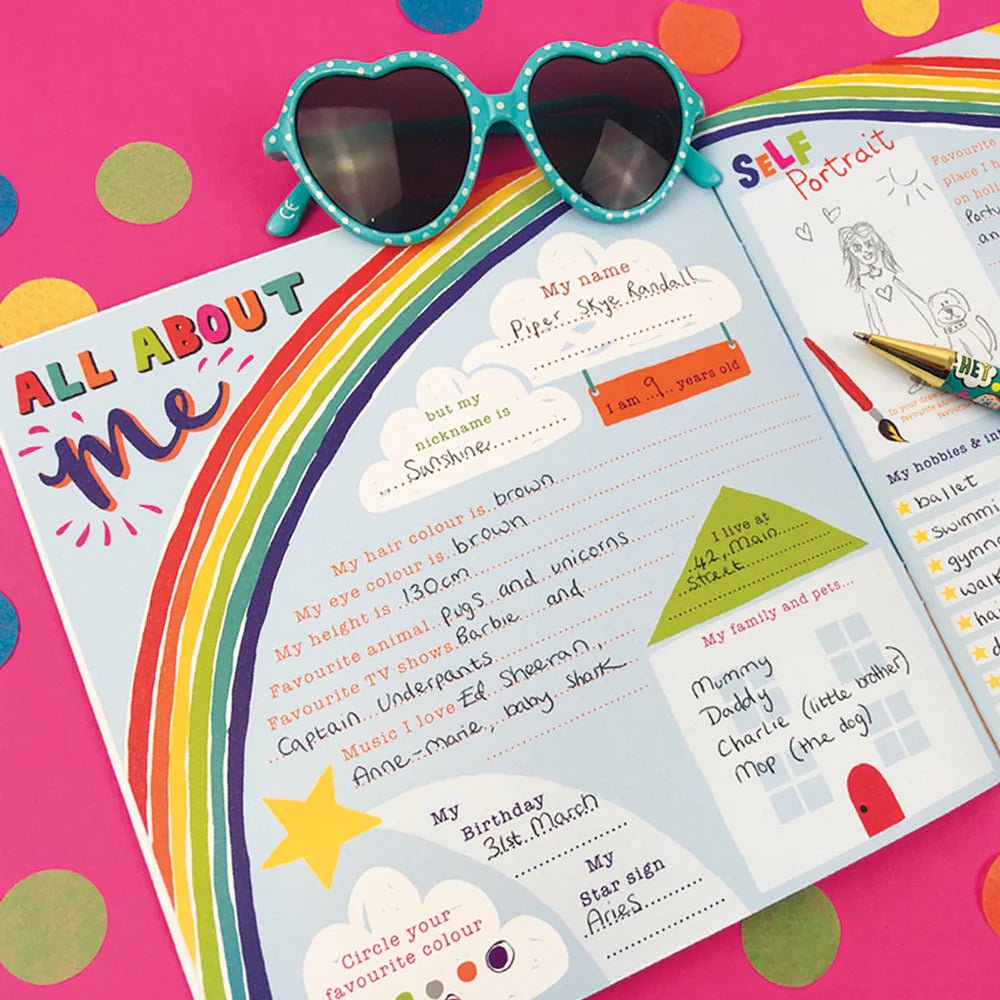 ALL ABOUT
me
My name
Piper Skye Randall
I am 9 years old
but my
nickname is
Sunshine
My hair colour is brown
My eye colour is brown
My height is 130cm
Favourite animal Pugs and unicorns
Favourite TV shows Barbie and
Captain Underpants
Music I love Ed Sheeran,
Anne-marie, baby shark
I live at
42, Main
Street
My family and pets...
Mummy
Daddy
Charlie (little brother)
Mop (the dog)
My
Birthday
31st March
My
Star sign
Aries
Circle your
favourite colour
SELF
Portrait
Favourite
place I
on
HEY
My hobbies &
ballet